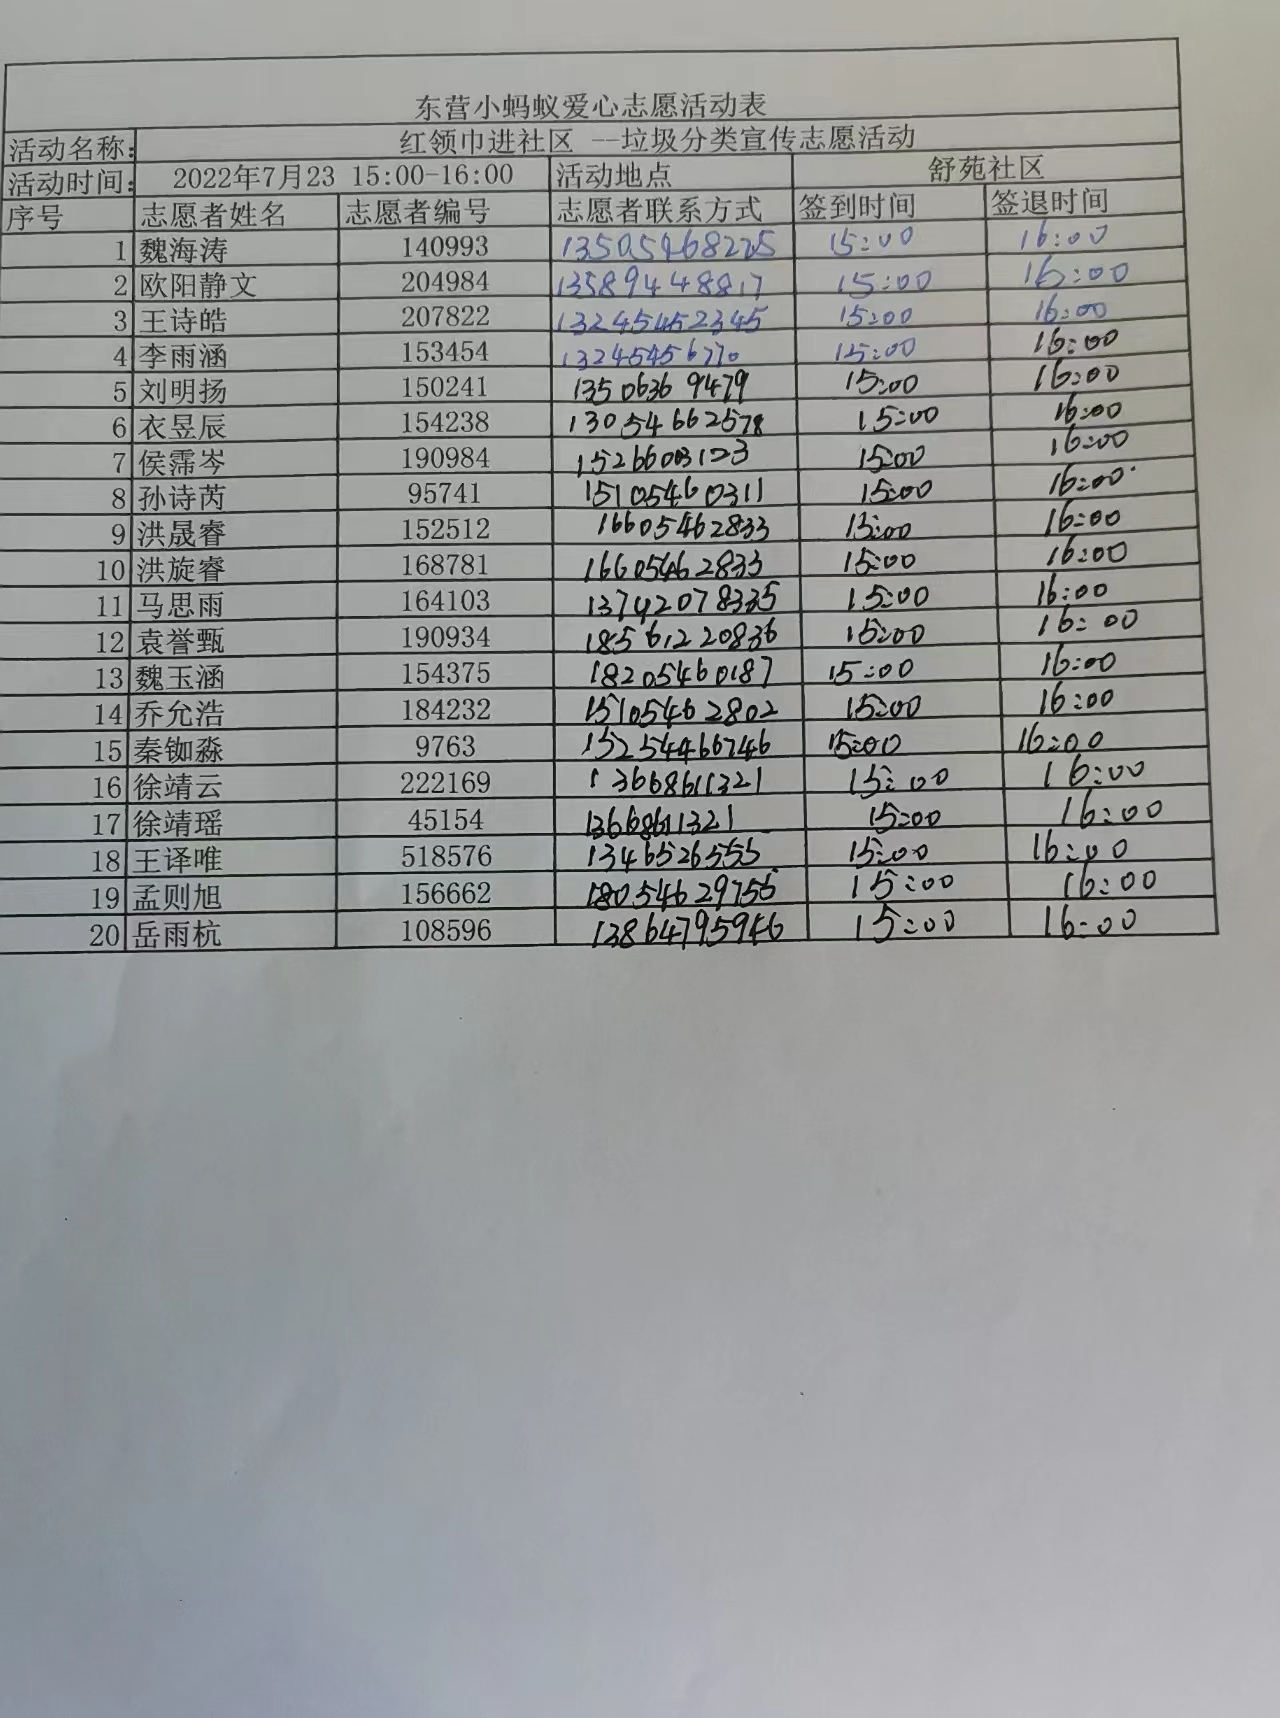 东营小蚂蚁爱心志愿活动表
活动名称: 红领巾进社区 --垃圾分类宣传志愿活动
活动时间: 2022年7月23 15:00-16:00 活动地点 舒苑社区
序号 志愿者姓名 志愿者编号 志愿者联系方式 签到时间 签退时间
1 魏海涛 140993 13505468225 15:00 16:00
2 欧阳静文 204984 13589448817 15:00 16:00
3 王诗皓 207822 13245452345 15:00 16:00
4 李雨涵 153454 13245456770 15:00 16:00
5 刘明扬 150241 13506369479 15:00 16:00
6 衣昱辰 154238 13054662578 15:00 16:00
7 侯霈岑 190984 15:00 16:00
8 孙诗芮 95741 15105460311 15:00 16:00
9 洪晟睿 152512 16605462833 15:00 16:00
10 洪旋睿 168781 16605462833 15:00 16:00
11 马思雨 164103 13742078335 15:00 16:00
12 袁誉甄 190934 18561220836 15:00 16:00
13 魏玉涵 154375 18205460187 15:00 16:00
14 乔允浩 184232 15105462802 15:00 16:00
15 秦铷淼 9763 15254466746 15:00 16:00
16 徐靖云 222169 13668611321 15:00 16:00
17 徐靖瑶 45154 13668611321 15:00 16:00
18 王译唯 518576 13465265555 15:00 16:00
19 孟则旭 156662 18054629755 15:00 16:00
20 岳雨杭 108596 13864795946 15:00 16:00